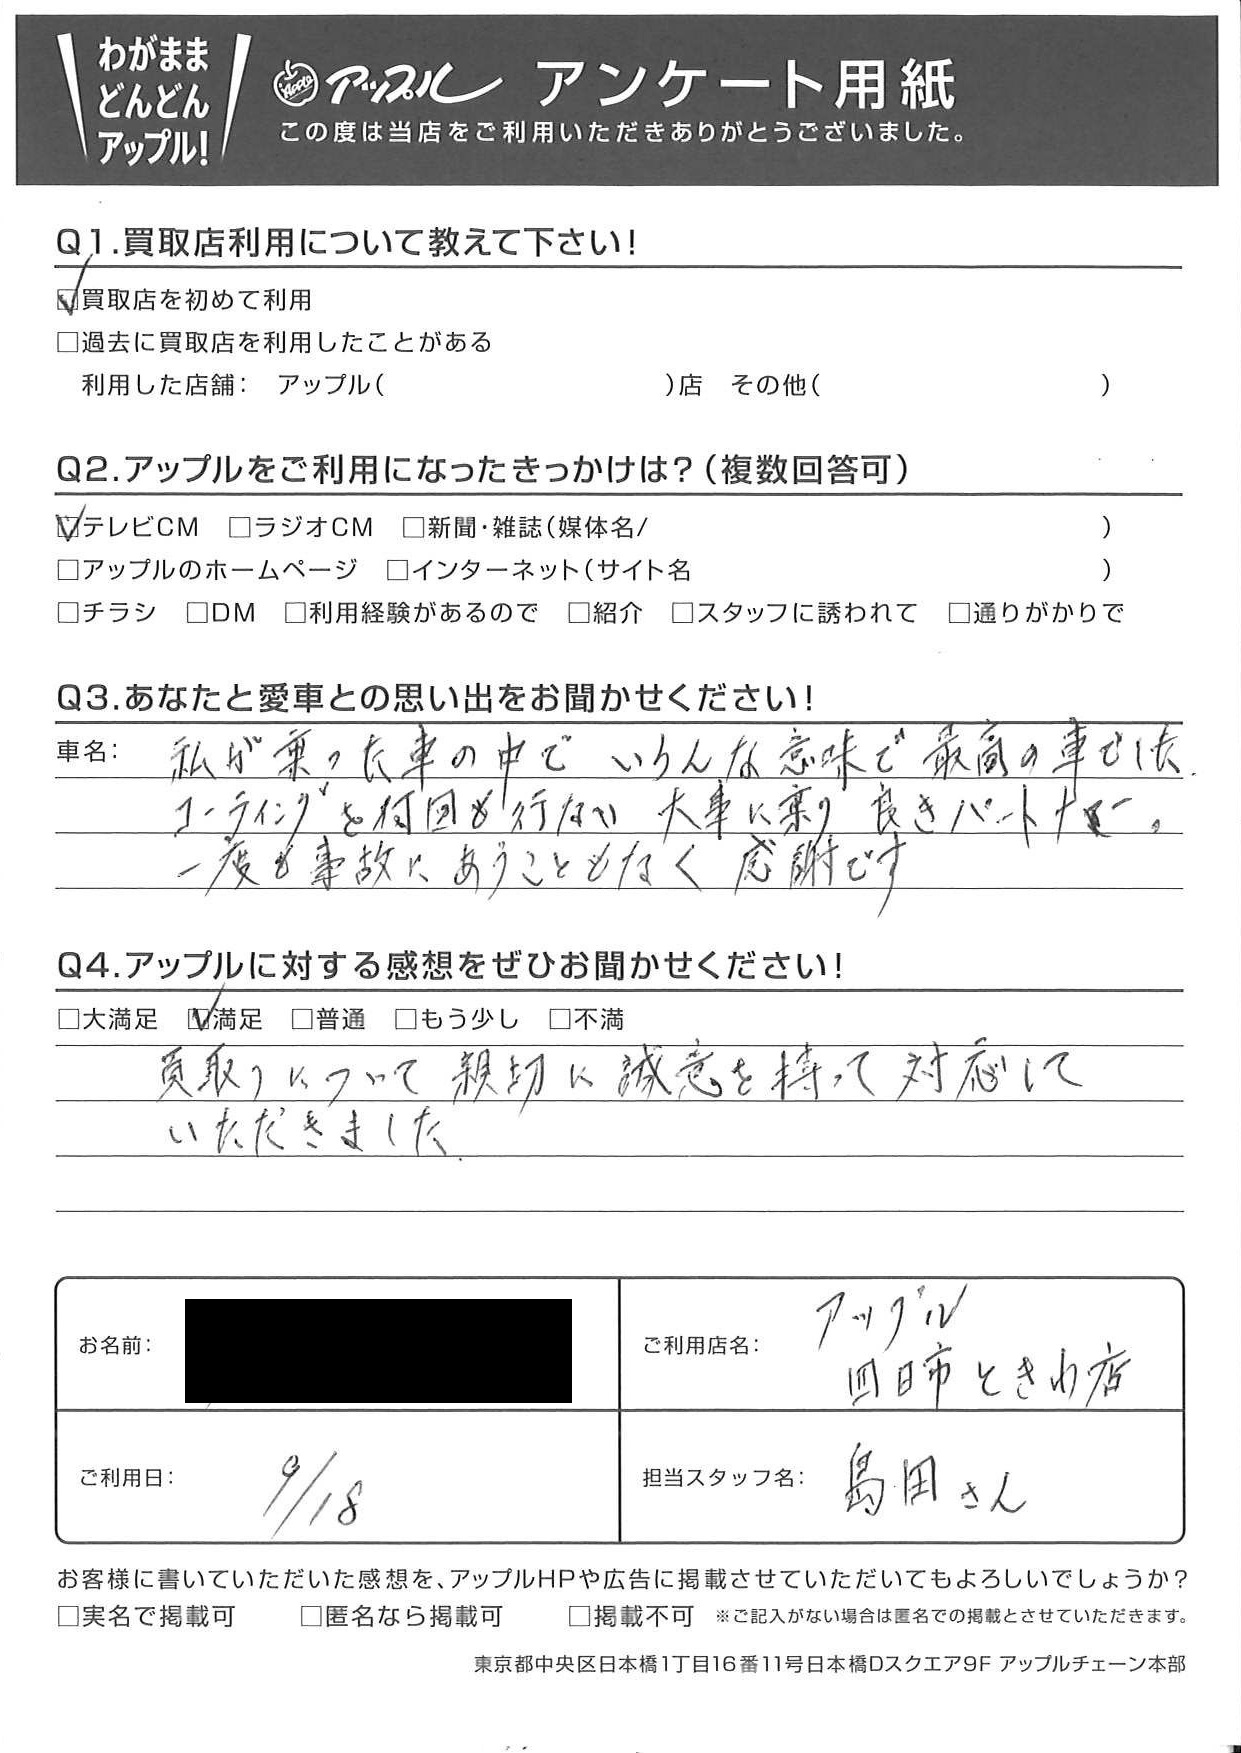 わがまま
どんどん
アップル!
Apple アップル アンケート用紙
この度は当店をご利用いただきありがとうございました。
Q1.買取店利用について教えて下さい!
☑買取店を初めて利用
□過去に買取店を利用したことがある
利用した店舗: アップル( )店 その他( )
Q2.アップルをご利用になったきっかけは?(複数回答可)
☑テレビCM □ラジオCM □新聞・雑誌(媒体名/ )
□アップルのホームページ □インターネット(サイト名 )
□チラシ □DM □利用経験があるので □紹介 □スタッフに誘われて □通りがかりで
Q3.あなたと愛車との思い出をお聞かせください!
車名: 私が乗った車の中で いろんな意味で 最高の車でした.
コーティングを何回も行ない 大事に乗り 良きパートナー。
一度も事故にあうこともなく 感謝です
Q4.アップルに対する感想をぜひお聞かせください!
□大満足 ☑満足 □普通 □もう少し □不満
買取りについて 親切に 誠意を持って 対応して
いただきました.
お名前:
ご利用店名: アップル
四日市ときわ店
ご利用日: 9/18
担当スタッフ名: 島田さん
お客様に書いていただいた感想を、アップルHPや広告に掲載させていただいてもよろしいでしょうか?
□実名で掲載可 □匿名なら掲載可 □掲載不可 ※ご記入がない場合は匿名での掲載とさせていただきます。
東京都中央区日本橋1丁目16番11号日本橋Dスクエア9F アップルチェーン本部